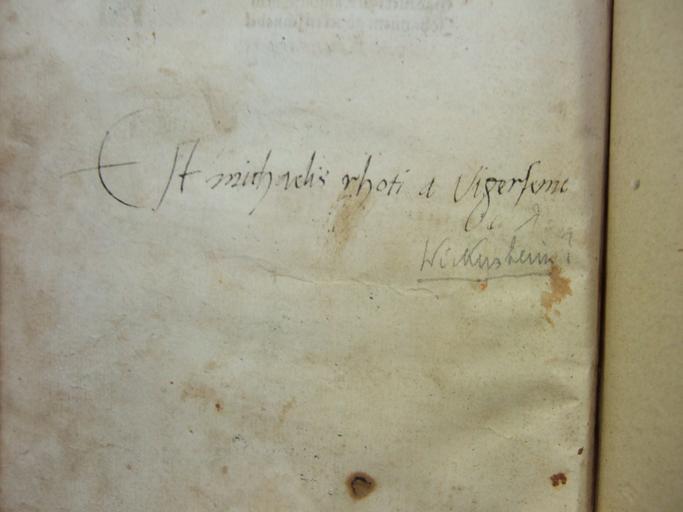 Est michaelis rhoti a Vigersene
Wickersheim?